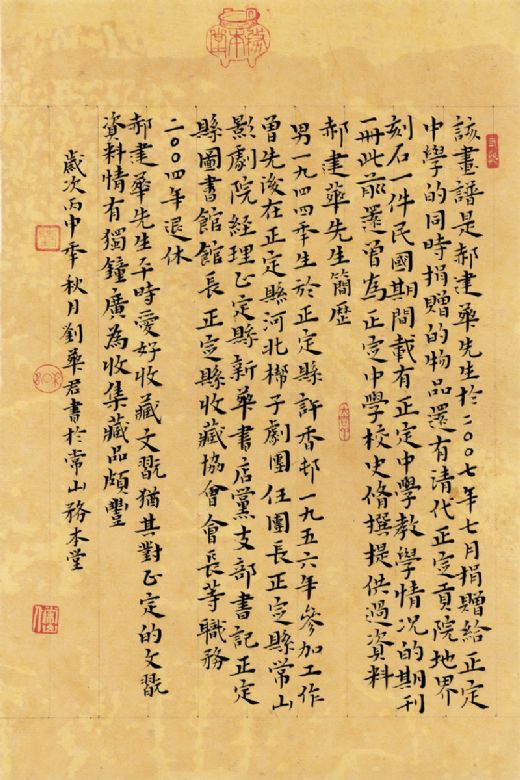 務本堂
該畫譜是郝建華先生於二〇〇七年七月捐贈給正定
中學的同時捐贈的物品還有清代正定貢院地界
刻石一件民國期間載有正定中學教學情况的期刊
一冊此前還曾為正定中學校史脩撰提供過資料
郝建華先生簡歷
男一九四四年生於正定縣許香邨一九五六年參加工作
曾先後在正定縣河北梆子劇團任團長正定縣常山
影劇院經理正定縣新華書店黨支部書記正定
縣圖書館館長正定縣收藏協會會長等職務
二〇〇四年退休
郝建華先生平時愛好收藏文翫猶其對正定的文翫
資料情有獨鐘廣為收集藏品頗豐
歲次丙申季秋月劉華君書於常山務本堂